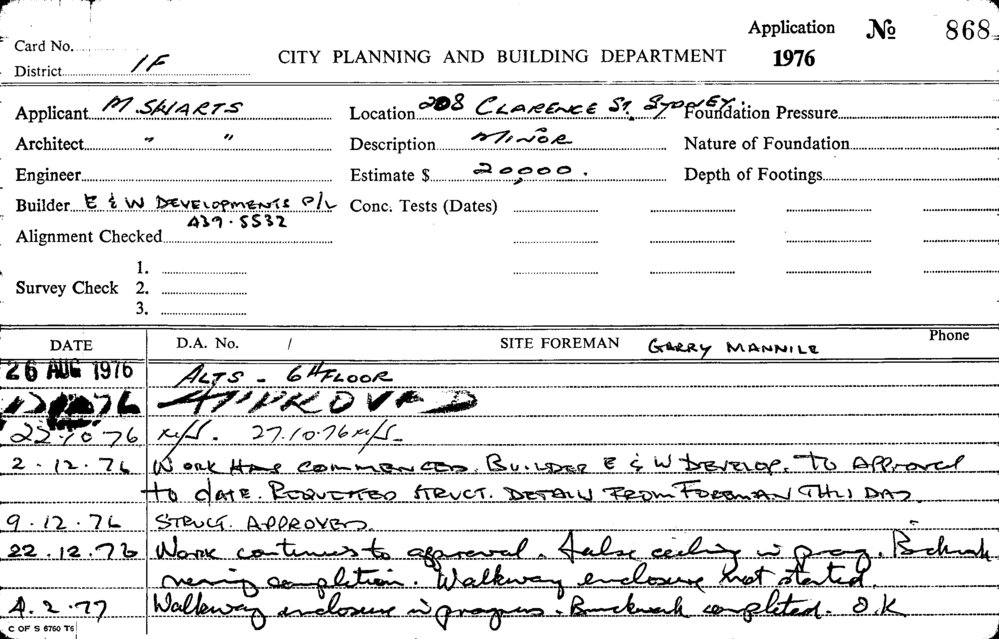 Application № 868
Card No.
CITY PLANNING AND BUILDING DEPARTMENT 1976
District 1F
Applicant M. SWARTS Location 208 CLARENCE ST. SYDNEY. Foundation Pressure
Architect " " Description MINOR Nature of Foundation
Engineer Estimate $ 20,000. Depth of Footings
Builder E & W DEVELOPMENTS P/L Conc. Tests (Dates)
439.5532
Alignment Checked
1.
Survey Check 2.
3.
DATE D.A. No. / SITE FOREMAN GARRY MANNILE Phone
26 AUG 1976 ALTS - 6TH FLOOR
76 APPROVED
22.10.76 n/s. 27.10.76 n/s-
2.12.76 WORK HAS COMMENCED. BUILDER E & W DEVELOP. TO APPROVAL
TO DATE. REQUESTED STRUCT. DETAILS FROM FOREMAN THIS DAY.
9.12.76 STRUCT. APPROVED.
22.12.76 Work continues to approval. False ceiling in prog. Brickwork
nearing completion. Walkway enclosure not started.
4.2.77 Walkway enclosure in progress. Brickwork completed. O.K
C OF S 6760 T6